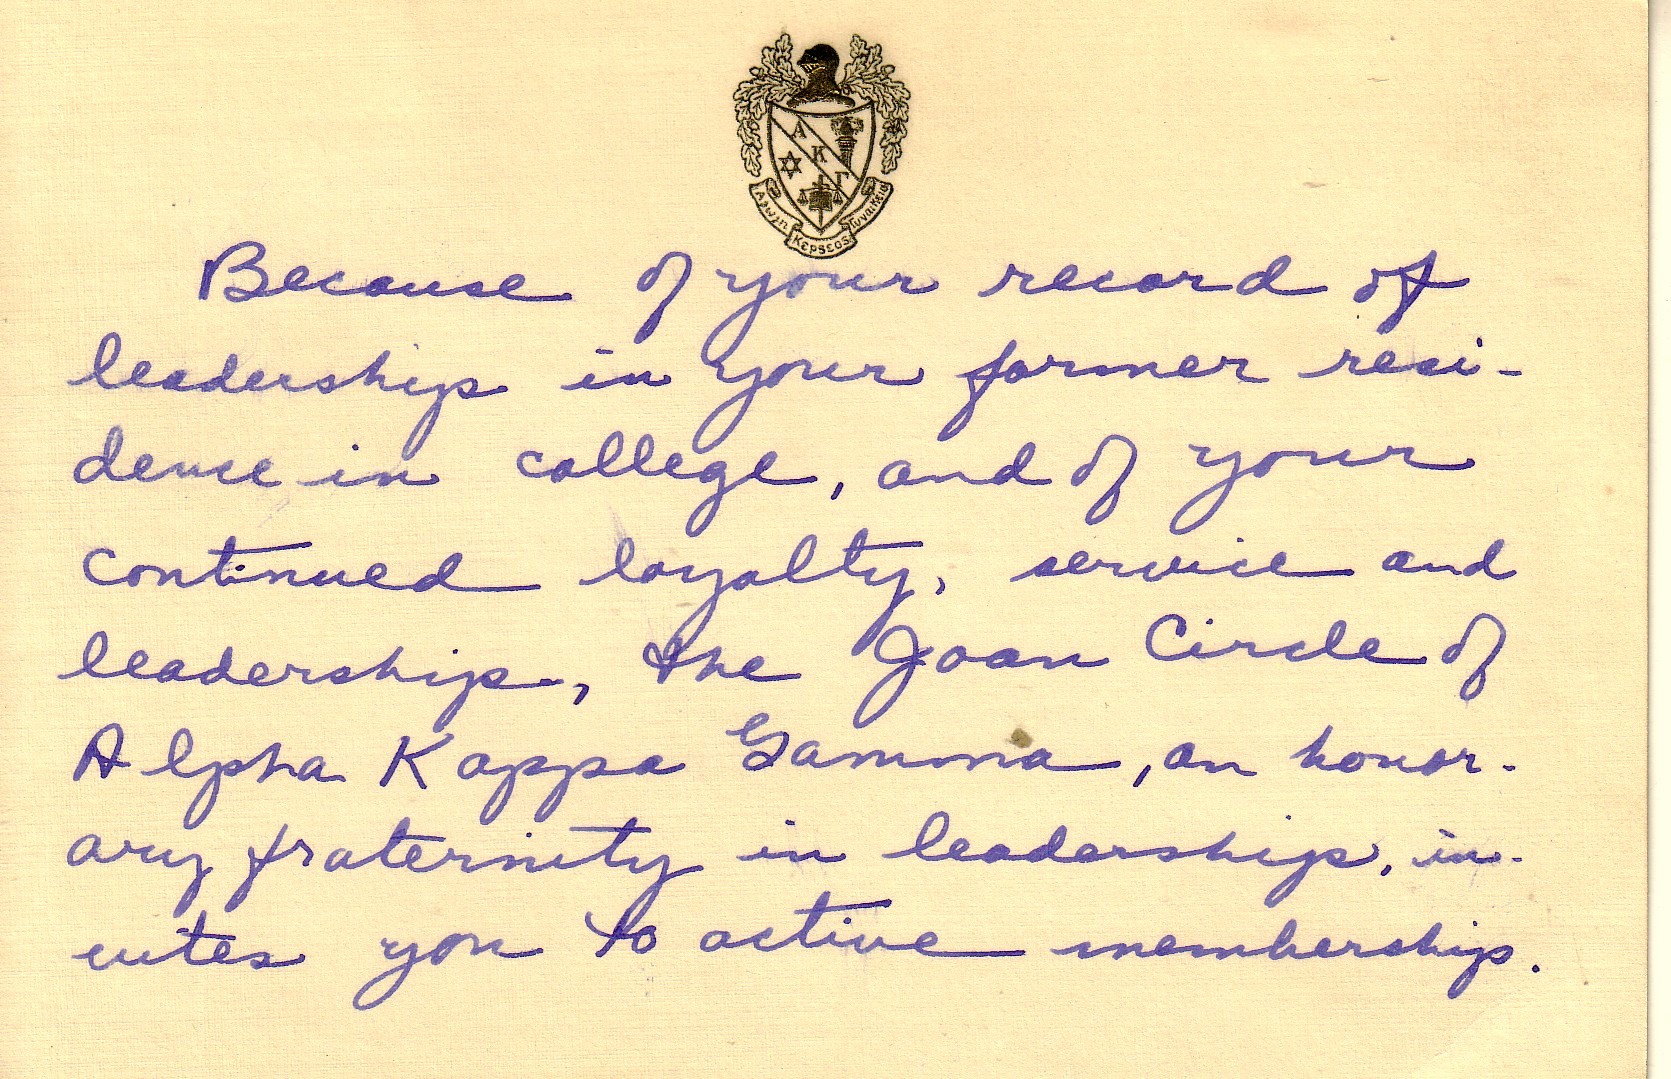 Α
Κ
Γ
Κερσεος
Because of your record of
leadership in your former resi-
dence in college, and of your
continued loyalty, service and
leadership, the Joan Circle of
Alpha Kappa Gamma, an honor-
ary fraternity in leadership, in-
vites you to active membership.